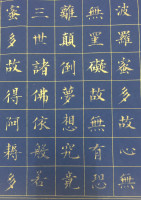 波羅蜜多故心無
無罣礙故無有恐
離顛倒夢想究竟
三世諸佛依般若
蜜多故得阿耨多